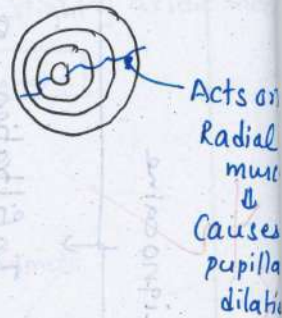 Acts on
Radial
musc
⇓
Causes
pupilla
dilatio